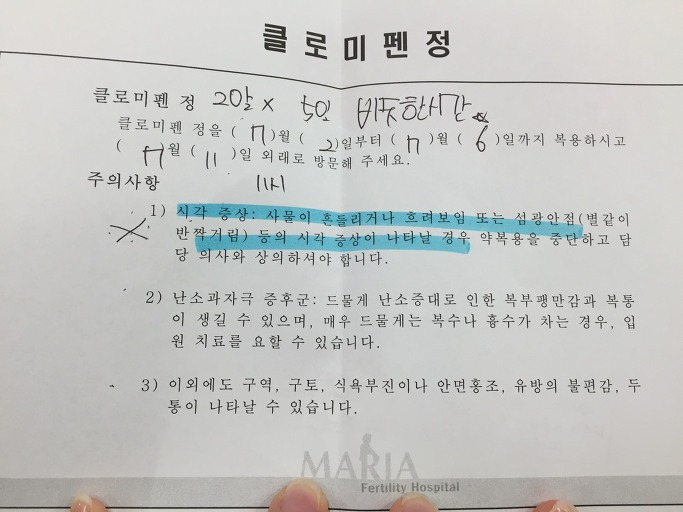 클로미펜정
클로미펜 정 2알 x 5일 비듯한시간
클로미펜 정을 ( 7 )월 ( 2 )일부터 ( 7 )월 ( 6 )일까지 복용하시고
( 7 )월 ( 11 )일 외래로 방문해 주세요.
주의사항 11시
1) 시각 증상: 사물이 흔들리거나 흐려보임 또는 섬광안점(별같이
반짝거림) 등의 시각 증상이 나타날 경우 약복용을 중단하고 담
당 의사와 상의하셔야 합니다.
2) 난소과자극 증후군: 드물게 난소증대로 인한 복부팽만감과 복통
이 생길 수 있으며, 매우 드물게는 복수나 흉수가 차는 경우, 입
원 치료를 요할 수 있습니다.
3) 이외에도 구역, 구토, 식욕부진이나 안면홍조, 유방의 불편감, 두
통이 나타날 수 있습니다.
MARIA
Fertility Hospital